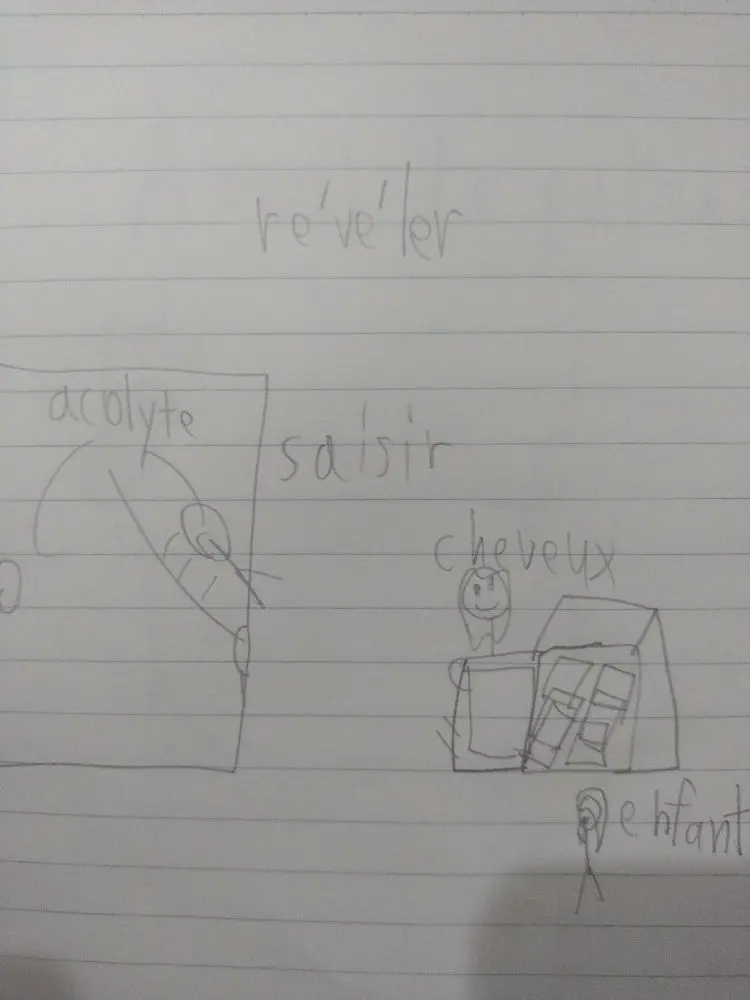 révéler
acolyte
saisir
cheveux
enfant